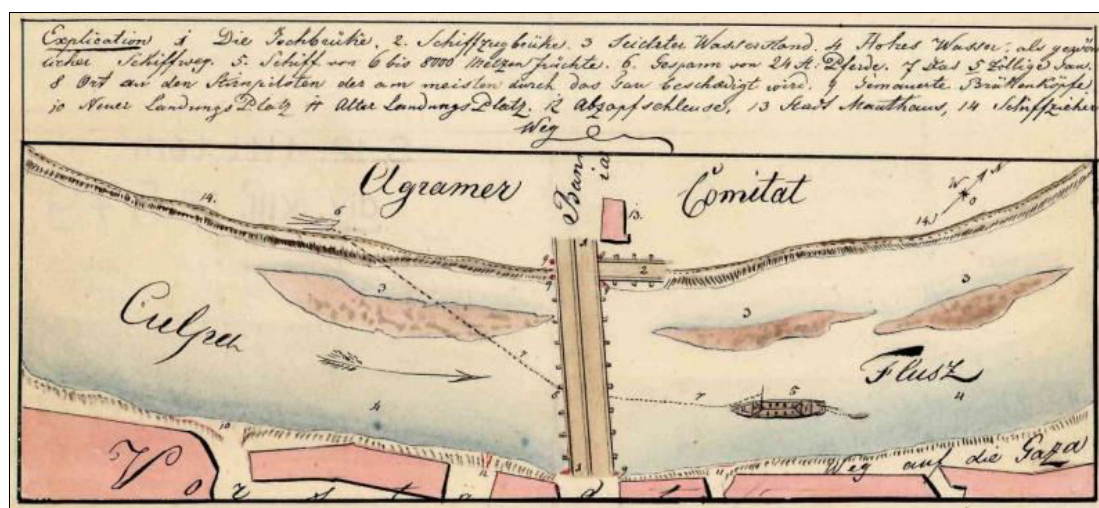 Explication 1 Die Jochbrücke, 2. Schiffzugbrücke. 3 Seichter Wasserstand. 4 Hohes Wasser, als gewön
licher Schiffweg. 5. Schiff von 6 bis 8000 Metzen Früchte. 6. Gespann von 24 St: Pferde. 7 Das 5 Zöllige Tau.
8 Ort an den Stirnpiloten der am meisten durch das Tau beschädigt wird. 9 Gemauerte Brükenköpfe
10 Neuer Landungs Platz 11 Alter Landungs Platz. 12 Abzapfschleuse, 13 Stadt Mauthaus, 14 Schiffzieher
Weg
Agramer Comitat
Bania
W N O
14. 6 13. 14
1 9 2
3 3 3
Culpa
7 8 7 5
Flusz
4 4
10 12 1 9
Weg auf die Gaza
Vorstadt